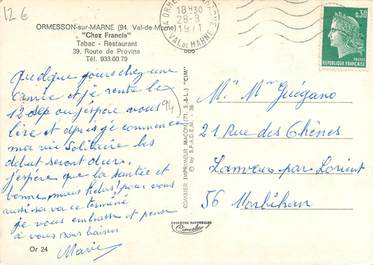 12 €
ORMESSON-sur-MARNE (94. Val-de-Marne)
"Chez Francis"
Tabac - Restaurant
39, Route de Provins
Tél. 933.00.79
18H30
28-8
VAL DE MARNE
0,30
REPUBLIQUE FRANÇAISE
Quelques jours chez une
Amie et je rentre le
12 sep ou j'espère vous
lire et depuis je commence
ma vie Solitaire les
début seront dur.
J'espère que la santée et
bonne pour vous
aussi sa va ce terminé
je vous embrasse et pense
à vous bons baisers
Marie
Or 24
COMBIER IMPRIMEUR MACON (S.-&-L.) "CIM"
© by S.P.A.D.E.M.
Mr Mme Guégano
21 Rue des Chênes
Lanveur par Lorient
56 Morbihan